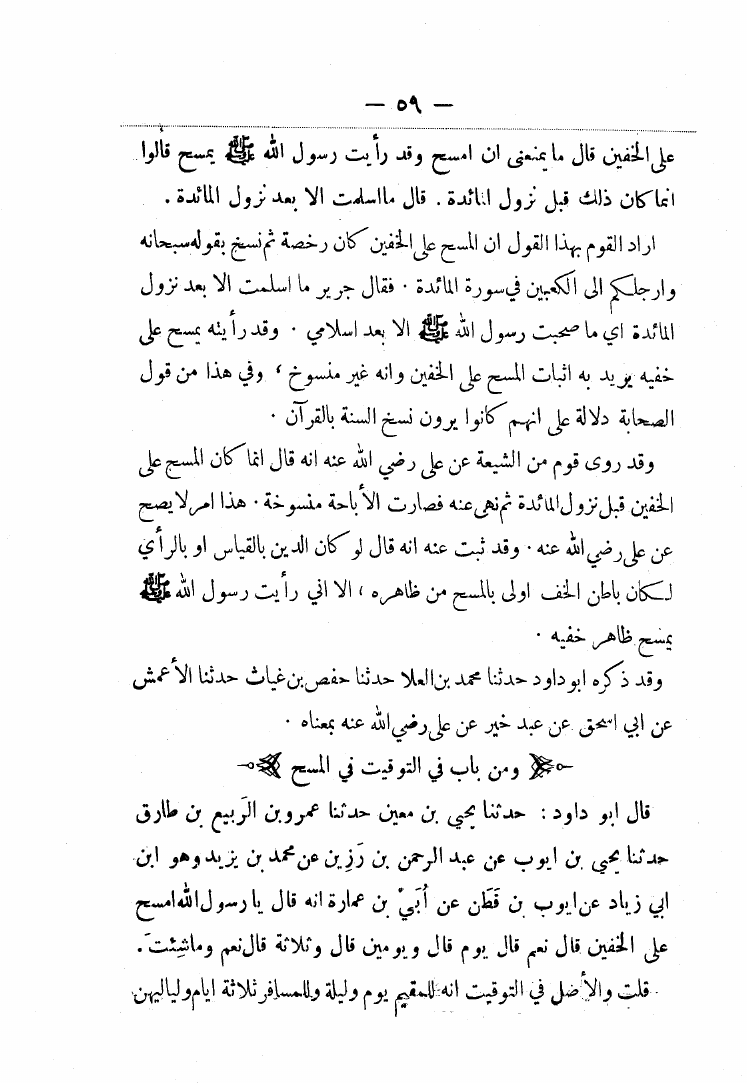 — ٥٩ —
على الخفين قال ما يمنعنى ان امسح وقد رأيت رسول الله ﷺ يمسح قالوا
انما كان ذلك قبل نزول المائدة . قال ما اسلمت الا بعد نزول المائدة .
اراد القوم بهذا القول ان المسح على الخفين كان رخصة ثم نسخ بقوله سبحانه
وارجلكم الى الكعبين في سورة المائدة . فقال جرير ما اسلمت الا بعد نزول
المائدة اي ما صحبت رسول الله ﷺ الا بعد اسلامي . وقد رأيته يمسح على
خفيه يريد به اثبات المسح على الخفين وانه غير منسوخ ، وفي هذا من قول
الصحابة دلالة على انهم كانوا يرون نسخ السنة بالقرآن .
وقد روى قوم من الشيعة عن على رضي الله عنه انه قال انما كان المسح على
الخفين قبل نزول المائدة ثم نهى عنه فصارت الأباحة منسوخة . هذا امر لا يصح
عن على رضي الله عنه . وقد ثبت عنه انه قال لو كان الدين بالقياس او بالرأي
لكان باطن الخف اولى بالمسح من ظاهره ، الا اني رأيت رسول الله ﷺ
يمسح ظاهر خفيه .
وقد ذكره ابو داود حدثنا محمد بن العلا حدثنا حفص بن غياث حدثنا الأعمش
عن ابي اسحق عن عبد خير عن على رضي الله عنه بمعناه .
ومن باب في التوقيت في المسح
قال ابو داود : حدثنا يحيى بن معين حدثنا عمرو بن الرَبيع بن طارق
حدثنا يحيى بن ايوب عن عبد الرحمن بن رَزِين عن محمد بن يزيد وهو ابن
ابي زياد عن ايوب بن قَطَن عن أُبَيْ بن عمارة انه قال يا رسول الله امسح
على الخفين قال نعم قال يوم قال ويومين قال وثلاثة قال نعم وما شِئتَ .
قلت والأصل في التوقيت انه للمقيم يوم وليلة وللمسافر ثلاثة ايام ولياليهن